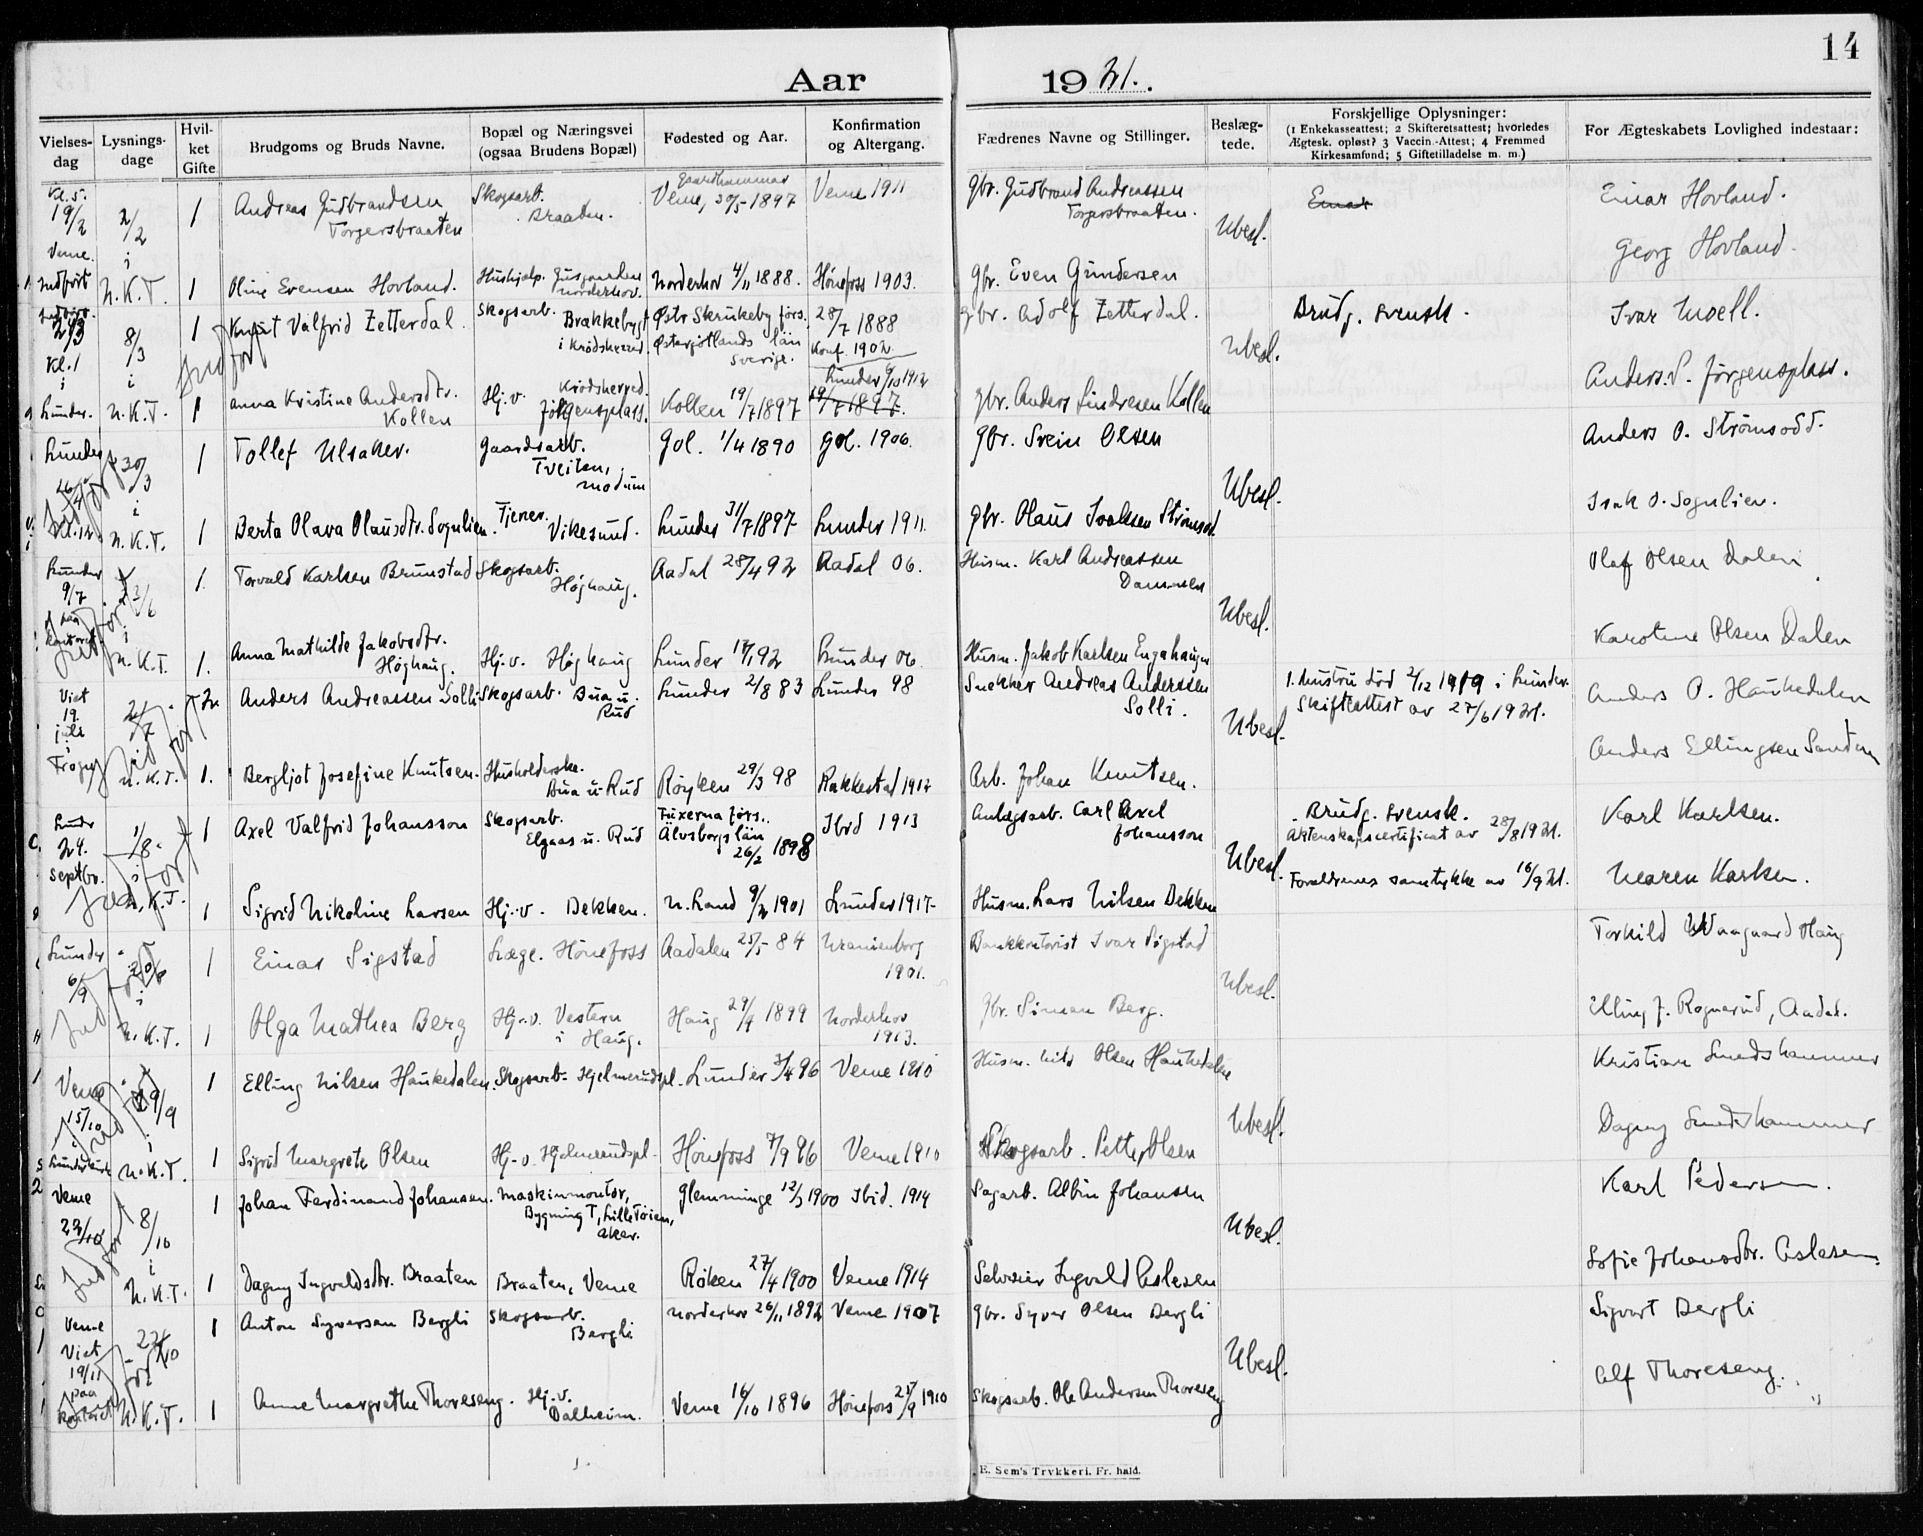 14
Aar 1921.
Vielses-dag
Lysnings-dage
Hvil-ket Gifte
Brudgoms og Bruds Navne.
Bopæl og Næringsvei (ogsaa Brudens Bopæl)
Fødested og Aar.
Konfirmation og Altergang.
Fædrenes Navne og Stillinger.
Beslæg-tede.
Forskjellige Oplysninger:
(1 Enkekasseattest; 2 Skifteretsattest; hvorledes
Ægtesk. opløst? 3 Vaccin.-Attest; 4 Fremmed
Kirkesamfund; 5 Giftetilladelse m. m.)
For Ægteskabets Lovlighed indestaar:
Kl. 5. 19/2 Veme. 2/2 i 1 Andreas Gudbrandsen Torgersbraaten Skogsarb. Braaten. Veme, 20/5 1897 Veme 1911 gbr. Gudbrand Andreassen Torgersbraaten. Ubesl. Einar Hovland.
Georg Hovland.
Indført N.K.T. 1 Oline Evensen Hovland. Hushjelp. Norderhov. Norderhov 4/11 1888. Hønefoss 1903. gbr. Even Gundersen
Kl. 1 i Lunder. 8/3 i 1 Knut Valfrid Zetterdal. Skogsarb. Brækkebygd i Krødsherred. Østr Skrukeby førs. Østergøtlands län Sverige. 28/7 1888 Konf. 1902. gbr. Adolf Zetterdal. Ubesl. Brudg. svensk. Ivar Moell.
Anders. P. Jørgensplass.
N.K.T. 1 Anna Kristine Andersdtr. Kollen Hj.v. Krødsherred. Jørgensplass. Kollen 19/7 1897 Lunder 1912 19/7 1897. gbr. Anders Lindresen Kollen
Lunder Kl. 12 30/3 i 1 Tollef Ulsaker. Gaardsarb. Tveiten, Modum Gol. 1/4 1890 Gol. 1906. gbr. Svein Olsen Ubesl. Anders O. Strømsodd.
Isak O. Sogulien.
N.K.T. 1 Berta Olava Olausdtr. Sogulien. Tjener. Vikesund. Lunder 31/7 1897 Lunder 1911. gbr. Olaus Isaksen Strømsod.
Lunder 9/7 i 1. Torvald Karlsen Brunstad Skogsarb. Høghaug. Aadal 28/4 92 Aadal 06. Husm. Karl Andreassen Dammen Ubesl. Olaf Olsen Dalen
Karoline Olsen Dalen
N.K.T. 1. Anna Mathilde Jakobsdtr. Høghaug. Hj.v. Høghaug Lunder 92 Lunder 06. Husm. Jakob Karlsen Engahaugen
Viet 19. juli 2. Anders Andreassen Solli Skogsarb. Bua u. Rud Lunder 2/8 83 Lunder 98 Snekker Andreas Anderssen Solli. Ubesl. 1. hustru død 2/12 1919 i Lunder. Skifteattest av 27/6 1921. Anders O. Haukedalen
Anders Ellingsen Sandum
N.K.T. 1. Bergljot Josefine Knutsen. Husholderske. Bua u. Rud Røyken 29/3 98 Rakkestad 1912 Arb. Johan Knutsen.
24. Septbr. 1/8 i 1 Axel Valfrid Johansson Skogsarb. Elgaas u. Rud Fuxerna førs. Älvsborgs län 26/2 1898 Ibid 1913 Anlægsarb. Carl Axel Johansson Ubesl. Brudg. svensk. Aktenskapscertificat av 28/8 1921. Forældrenes samtykke av 16/9 21. Karl Karlsen.
Maren Karlsen.
N.K.T. 1 Sigrid Nikoline Larsen Hj.-v. Bekken. N. Land 9/2 1901 Lunder 1917 Husm. Lars Nilsen Bekken
Lunder 6/9 i 1 Einar Sigstad Læge. Hønefoss Aadalen 25/5 84 Uranienborg 1901. Bankkontorist Ivar Sigstad Ubesl. Torkild Waagaard Haug
Elling J. Rognerud, Aadal.
N.K.T. 1 Olga Mathea Berg Hj.-v. Vestern i Haug. Haug 29/4 1899 Norderhov 1913. Gbr. Simen Berg.
Veme 15/10 29/9 i 1 Elling Nilsen Haukedalen. Skogsarb. Hjelmerudspl. Lunder 96 Veme 1810 Husm. Nils Olsen Haukedalen Ubesl. Kristian Smedshammer
Dagny Smedshammer
N.K.T. 1 Sigrid Margrete Olsen Hj.-v. Hjelmerudspl. Hønefoss 7/9 96 Veme 1910 Skogsarb. Petter Olsen
Veme 22/10 8/10 i 1 Johan Ferdinand Johansen. Maskinmontør, Bygning T, Lille Tøien, Aker. Glemminge 12/3 1900 Ibid. 1914 Sagarb. Albin Johansen Ubesl. Karl Pedersen.
Sofie Johansdtr. Aslesen.
N.K.T. 1 Dagny Ingvaldsdtr. Braaten Braaten, Veme Røken 27/4 1900 Veme 1914 Selveier Ingvald Aslesen
Veme Viet 19/11 paa kontoret 1 Anton Syversen Bergli Skogsarb. Bergli Norderhov 26/11 1892 Veme 1907 gbr. Syver Olsen Bergli Ubesl. Sigvart Bergli
Alf Thoreseng.
N.K.T. 1 Anne Margrethe Thoreseng. Hj.-v. Dalheim. Veme 16/10 1896 Hønefoss 25/9 1910 Skogsarb. Ole Andersen Thoreseng
E. Sem's Trykkeri. Fr. hald.